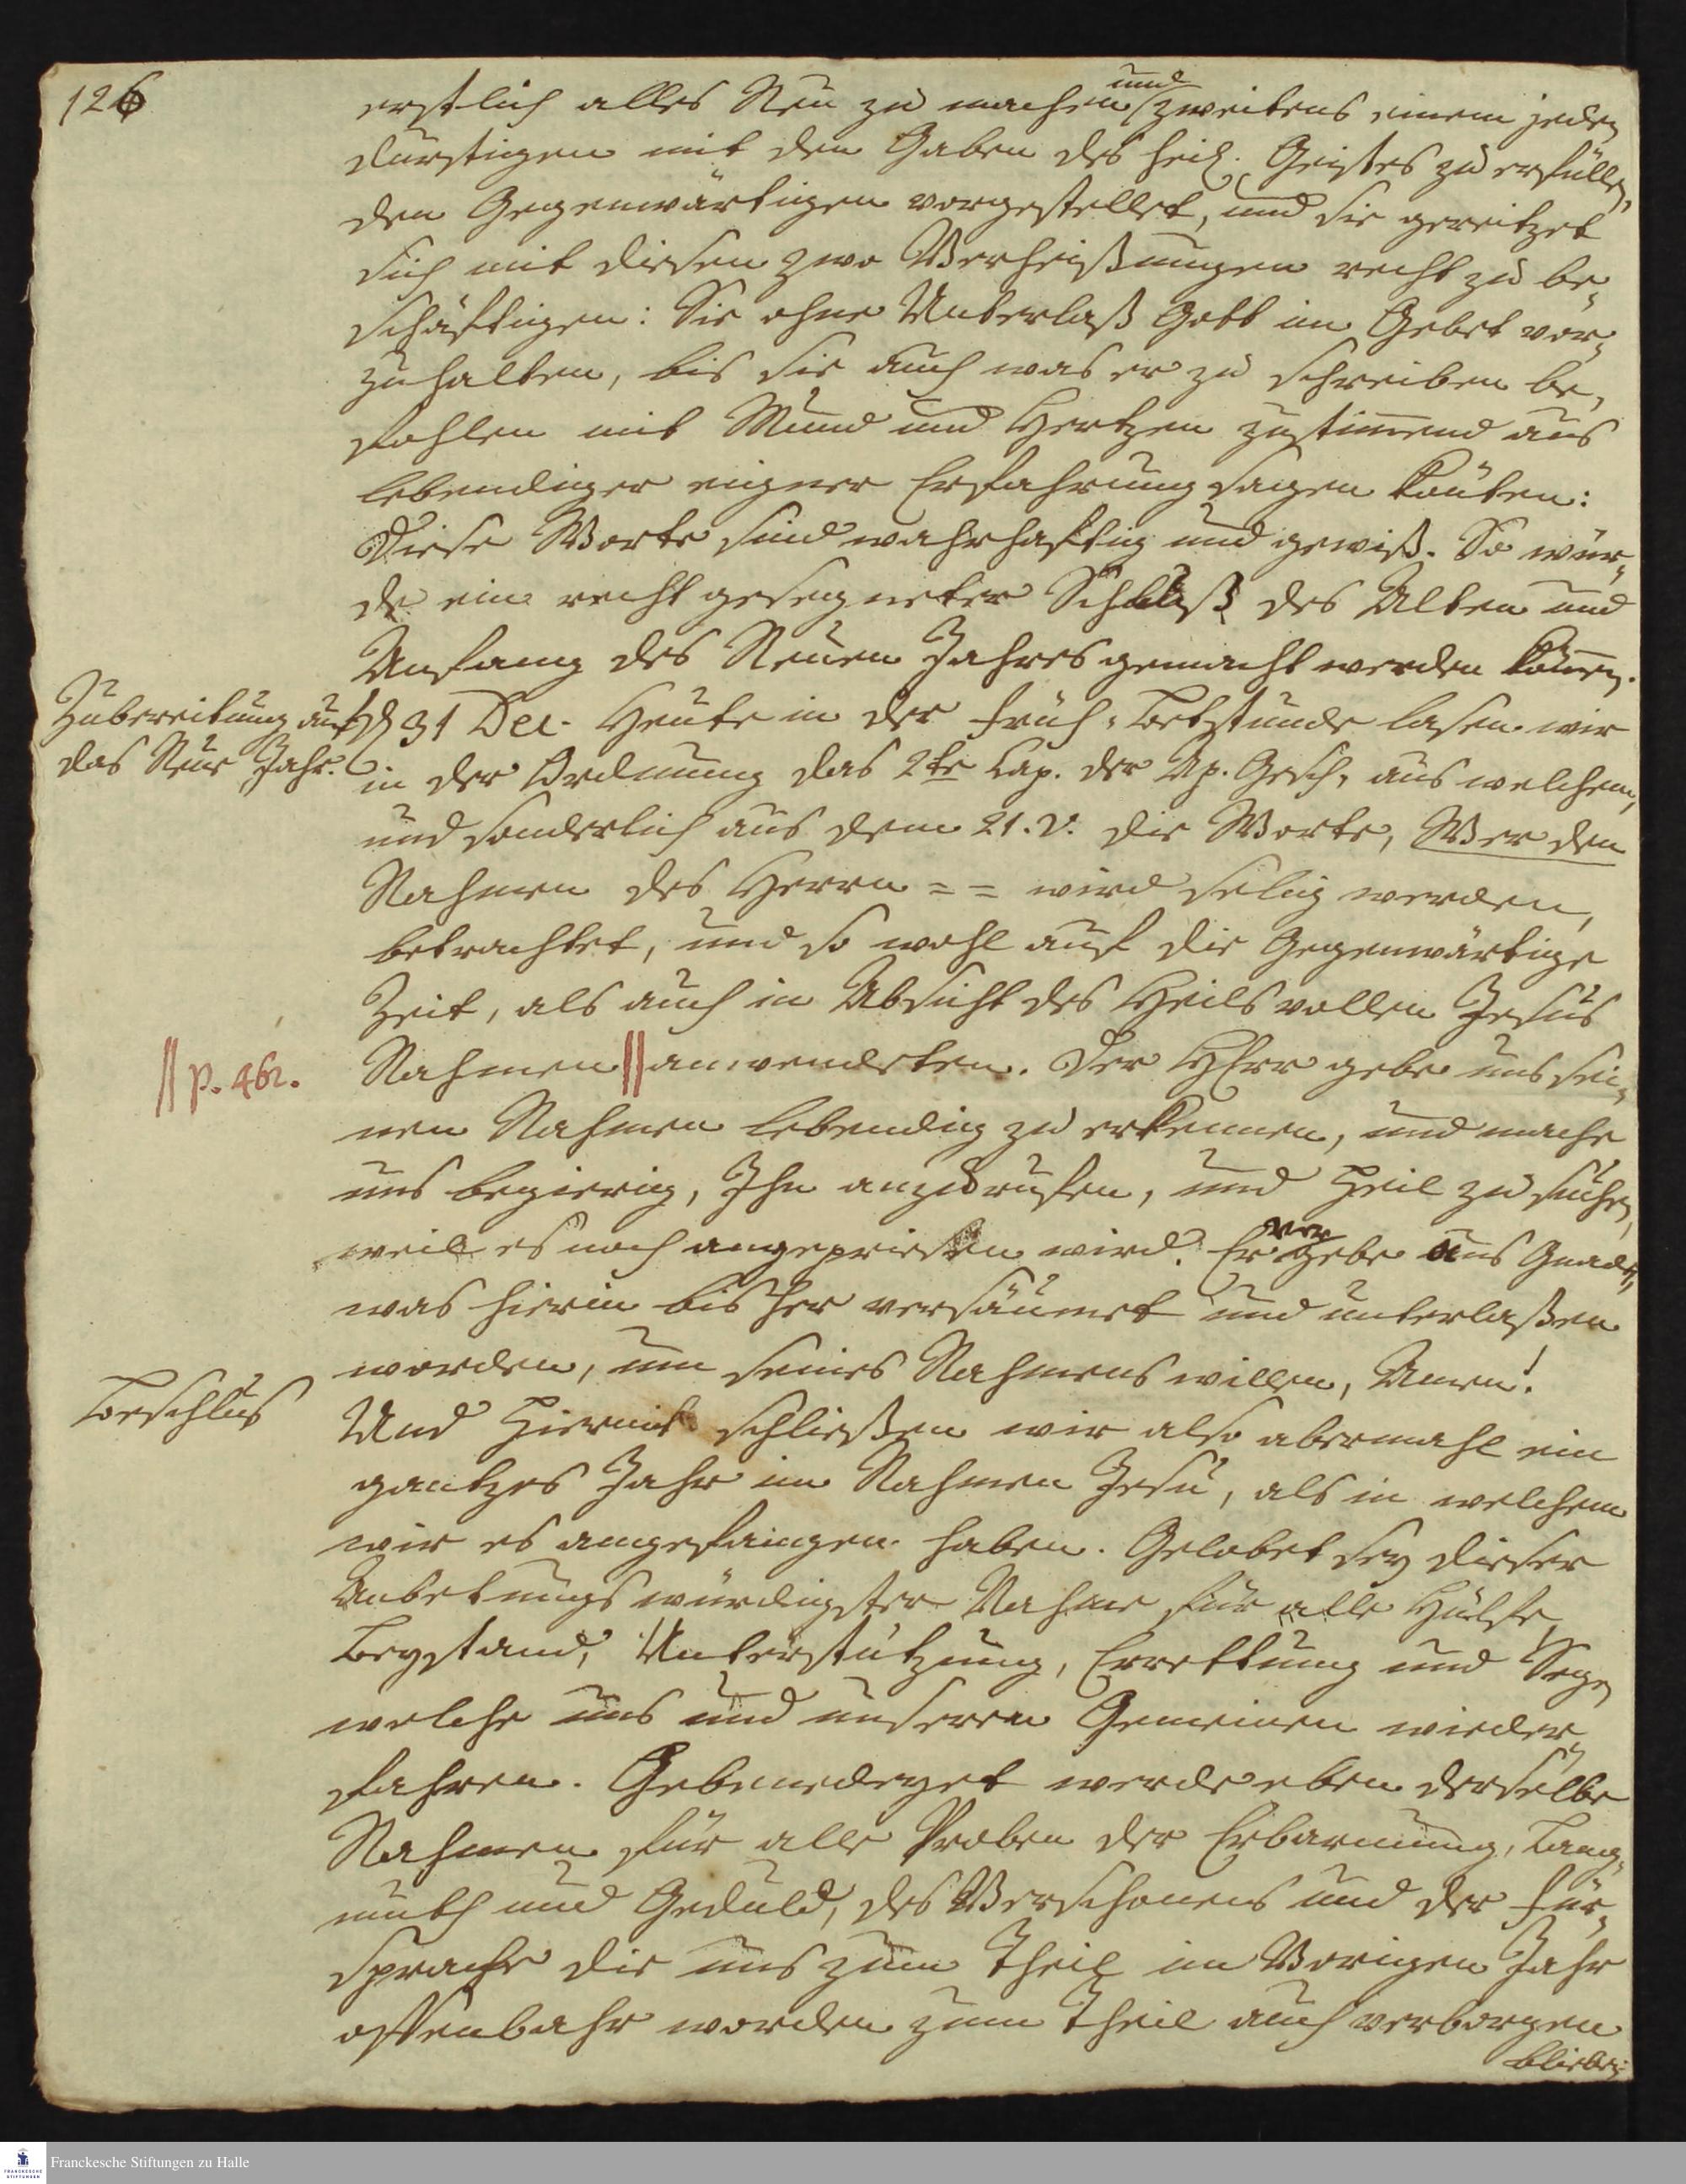 126
und
erstlich alles Neu zu machen, zweitens einem jeden
durstigen mit den Gaben des heil. Geistes zu erfüllen,
den Gegenwärtigen vorgestellet, und sie gereitzet
sich mit diesen zwo Verheißungen recht zu be-
schäftigen: Sie ohne Unterlaß Gott im Gebet vor-
zuhalten, bis sie auch was er zu schreiben be-
fohlen mit Mund und Hertzen zustimend aus
lebendiger eigner Erfahrung sagen könten:
Diese Worte sind wahrhafftig und gewiß. So wür-
de ein recht gesegneter Schluß des Alten und
Anfang des Neuen Jahres gemacht werden könen.
Zubereitung auf
das Neue Jahr.
31 Dec. Heute in der Früh-Betstunde lasen wir
in der Ordnung das 2te Cap. der Ap. Gesch. aus welchem,
und sonderlich aus dem 21. V. die Worte, Wer den
Nahmen des Herrn = = wird selig werden,
betrachtet, und so wohl auf die Gegenwärtige
Zeit, als auch in Absicht des Heils vollen Jesus
|| p. 462.
Nahmen || anwendeten. Der HErr gebe uns sei-
nen Nahmen lebendig zu erkennen, und mache
uns begierig, Ihn anzurufen, und Heil zu suchen,
weil es noch angepriesen wird. Er vergebe uns Gnade,
was hierin bis her versäumet und unterlaßen
worden, um seines Nahmens willen, Amen!
Beschlus
Und Hiermit schließen wir also abermahl ein
gantzes Jahr im Nahmen Jesu, als in welchem
wir es angefangen haben. Gelobet sey dieser
Anbetungs würdigster Nahme für alle Hülfe,
Beystand, Unterstützung, Errettung und Segen
welche uns und unseren Gemeinen wieder-
fahren. Gebenedeyet werde eben derselbe
Nahmen für alle Proben der Erbarmung, Lang-
muth und Geduld, des Verschonens und der Für-
sprache die uns zum Theil im Vorigen Jahr
offenbahr worden zum Theil auch verborgen
blieben
Franckesche Stiftungen zu Halle
FRANCKESCHE STIFTUNGEN